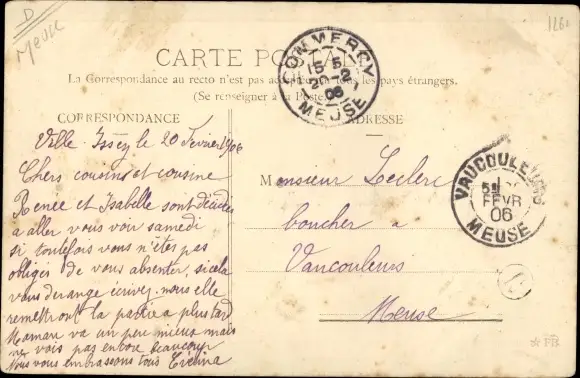 D
Meuse
CARTE POSTALE
La Correspondance au recto n'est pas acceptée par tous les pays étrangers.
(Se renseigner à la Poste)
CORRESPONDANCE
Ville Issey le 20 Fevrier 1906
Chers cousins et cousine
Renée et Isabelle sont décidées
a aller vous voir samedi
si toutefois vous n'êtes pas
obliges de vous absenter, si cela
vous derange écrivez-nous elle
remettront la partie a plus tard
Maman va un peu mieux mais
ne vois pas encore beaucoup
Nous vous embrassons tous
ADRESSE
Monsieur Leclerc
boucher a
Vancouleurs
Meuse
COMMERCY
15 5
20 -2
06
MEUSE
VAUCOULEURS
FEVR
06
MEUSE
FB